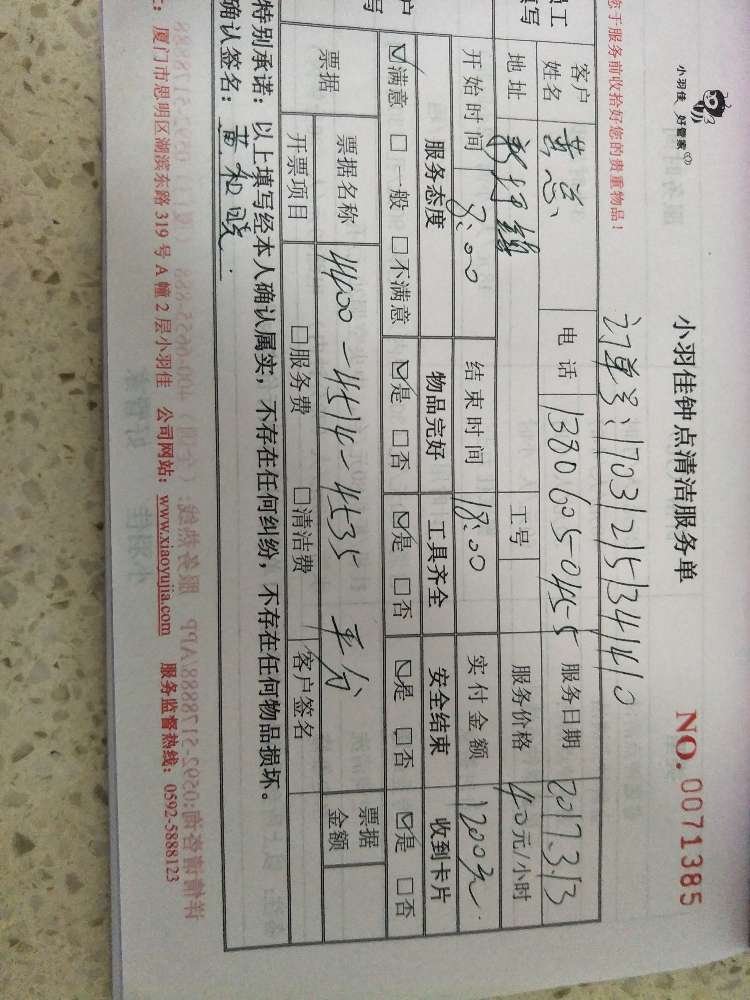 小羽佳 好管家
小羽佳钟点清洁服务单
NO. 0071385
您于服务前收拾好您的贵重物品！
订单号：17031215341410
员工
填写
客户
姓名
黄总
电话
13806050455
服务日期
2017.3.13
地址
工号
服务价格
40元/小时
开始时间
8:00
结束时间
18:00
实付金额
1200元
户
写
服务态度 物品完好 工具齐全 安全结束 收到卡片
☑满意 □一般 □不满意 ☑是 □否 ☑是 □否 ☑是 □否 ☑是 □否
票据
票据名称
4400-4514-4535 平分
票据
金额
开票项目
□服务费 □清洁费
客户签名
特别承诺：以上填写经本人确认属实，不存在任何纠纷，不存在任何物品损坏。
确认签名：
厦门市思明区湖滨东路 319 号 A 幢 2 层小羽佳 公司网站：www.xiaoyujia.com 服务监督热线：0592-5888123